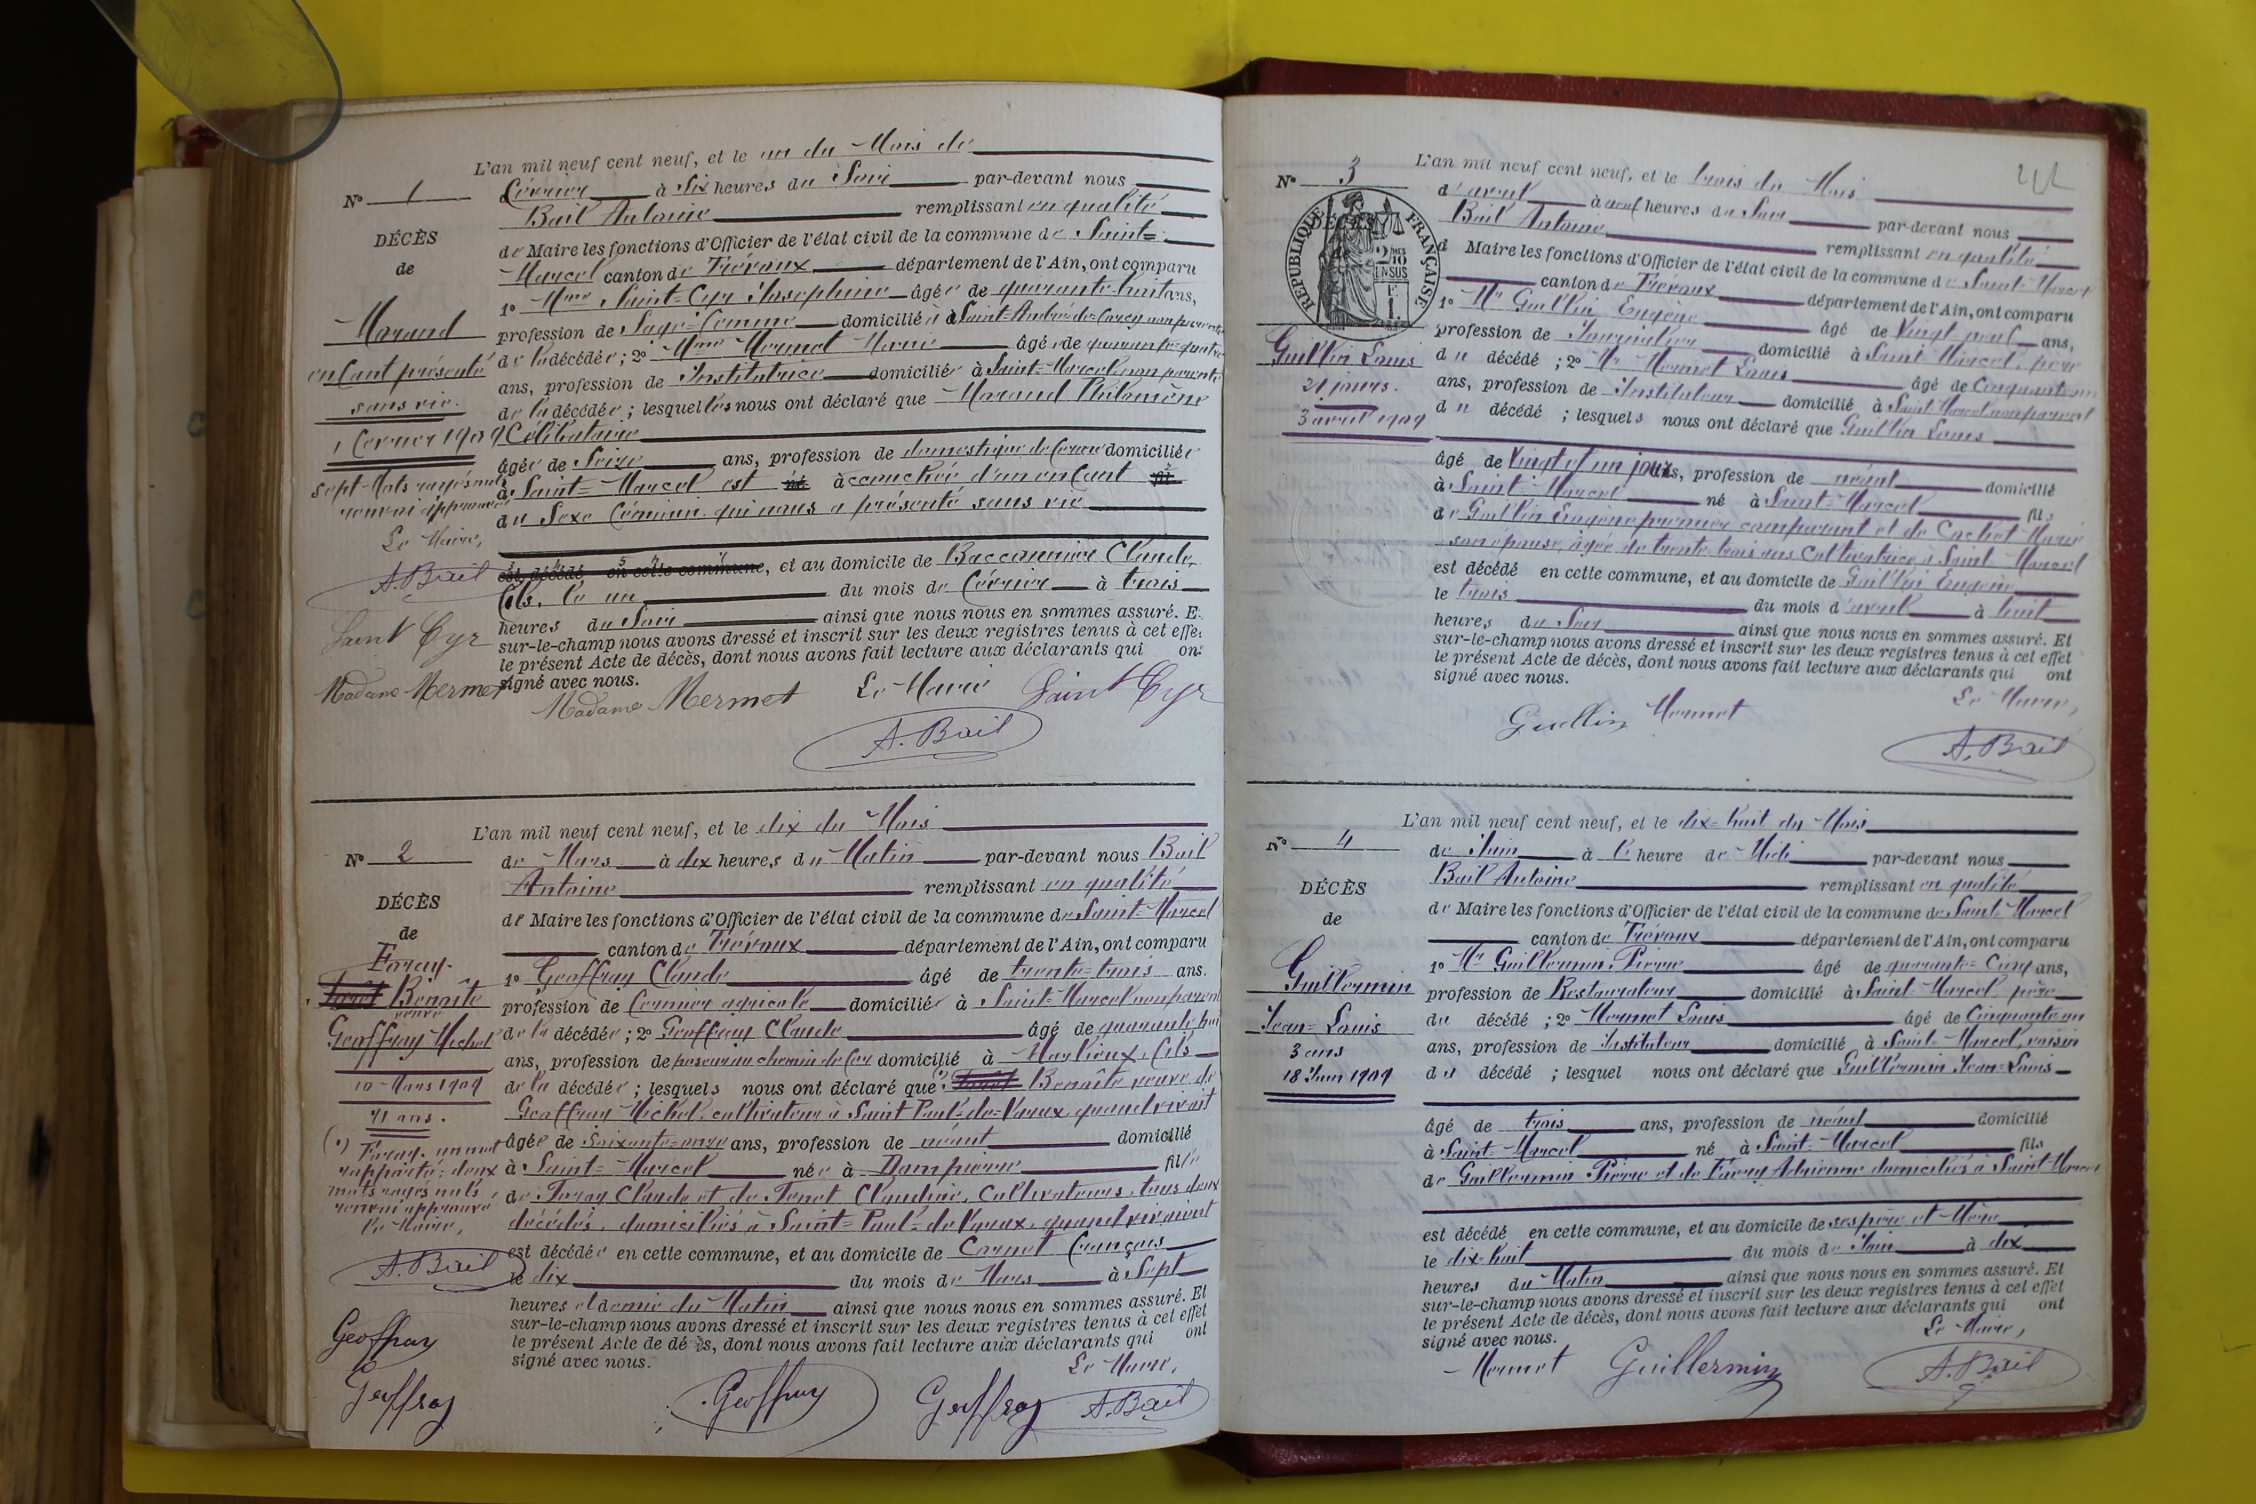 L'an mil neuf cent neuf, et le un du Mois de
N° 1
février à Six heures du Soir par-devant nous
Bail Antoine remplissant en qualité
DÉCÈS
de Maire les fonctions d'Officier de l'état civil de la commune de Saint=
de
Marcel canton de Trévoux département de l'Ain, ont comparu
1° Mme Saint=Cyr Joséphine âgée de quarante-huit ans,
Marand
profession de Sage=femme domiciliée à Saint=André-de-Corcy non parente
enfant présenté
de la décédée ; 2° Mme Mermet Marie âgée de quarante-quatre
ans, profession de Institutrice domiciliée à Saint=Marcel non parente
sans vie.
de la décédée ; lesquelles nous ont déclaré que Marand Philomène
1 février 1909
Célibataire
âgée de Seize ans, profession de domestique de ferme domiciliée
sept Mots rayés nuls
à Saint=Marcel est né accouchée d'un enfant fil
renvoi approuvé
du Sexe féminin qui nous a présenté sans vie
Le Maire,
A. Bail
est décédé en cette commune, et au domicile de Baconnier Claude,
fils, le un du mois de février à trois
heures du Soir ainsi que nous nous en sommes assuré. E
Saint Cyr
sur-le-champ nous avons dressé et inscrit sur les deux registres tenus à cet effe
le présent Acte de décès, dont nous avons fait lecture aux déclarants qui on
Madame Mermet
signé avec nous.
Madame Mermet Le Maire Saint Cyr
A. Bail
L'an mil neuf cent neuf, et le dix du Mois
N° 2
de Mars à dix heures du Matin par-devant nous Bail
Antoine remplissant en qualité
DÉCÈS
de Maire les fonctions d'Officier de l'état civil de la commune de Saint=Marcel
de
canton de Trévoux département de l'Ain, ont comparu
Faray.
1° Geoffray Claude âgé de trente=trois ans.
Benoîte
profession de fermier agricole domiciliée à Saint=Marcel non parent
veuve
Geoffray Michel
de la décédée ; 2° Geoffray Claude âgé de quarante huit
ans, profession de poseur au chemin de fer domicilié à Marlieux, fils
10 Mars 1909
de la décédée ; lesquels nous ont déclaré que (1) Benoîte veuve de
71 ans.
Geoffray Michel, cultivateur à Saint Paul=de=Varax quand vivait
âgée de Soixante-onze ans, profession de néant domicilié
(1) Faray. un mot
rapporté : deux
à Saint=Marcel née à Dompierre fille
mots rayés nuls,
de Faray Claude et de Tenet Claudine, Cultivateurs, tous deux
renvoi approuvé
décédés, domiciliés à Saint=Paul=de Varax, quand vivaient
Le Maire,
est décédée en cette commune, et au domicile de Cornet François
A. Bail
le dix du mois de Mars à Sept
heures et demie du Matin ainsi que nous nous en sommes assuré. Et
sur-le-champ nous avons dressé et inscrit sur les deux registres tenus à cet effet
Geoffray
le présent Acte de dé ès, dont nous avons fait lecture aux déclarants qui ont
signé avec nous.
Le Maire,
Geoffray
Geoffray Geoffray A. Bail
L'an mil neuf cent neuf, et le trois du Mois
N° 3
d'avril à neuf heures du Soir par-devant nous
DÉCÈS
Bail Antoine remplissant en qualité
RÉPUBLIQUE FRANÇAISE
2/10 EN SUS
F 1.
d Maire les fonctions d'Officier de l'état civil de la commune de Saint=Marcel
canton de Trévoux département de l'Ain, ont comparu
1° Mr Guillin Eugène âgé de Vingt neuf ans,
profession de Journalier domicilié à Saint Marcel, père
Guillin Louis
du décédé ; 2° Mr Mermet Louis âgé de Cinquante un
21 jours.
ans, profession de Instituteur domicilié à Saint Marcel non parent
3 avril 1909
du décédé ; lesquels nous ont déclaré que Guillin Louis
âgé de Vingt et un jours, profession de néant domicilié
à Saint=Marcel né à Saint=Marcel fils
de Guillin Eugène premier comparant et de Cachet Marie
son épouse, âgée de trente trois ans Cultivatrice à Saint=Marcel
est décédé en cette commune, et au domicile de Guillin Eugène
le trois du mois d'avril à huit
heures du Soir ainsi que nous nous en sommes assuré. Et
sur-le-champ nous avons dressé et inscrit sur les deux registres tenus à cet effet
le présent Acte de décès, dont nous avons fait lecture aux déclarants qui ont
signé avec nous.
Le Maire,
Guillin Mermet
A. Bail
L'an mil neuf cent neuf, et le dix=huit du Mois
N° 4
de Juin à l heure de Midi par-devant nous
Bail Antoine remplissant en qualité
DÉCÈS
de Maire les fonctions d'Officier de l'état civil de la commune de Saint=Marcel
de
canton de Trévoux département de l'Ain, ont comparu
1° Mr Guillermin Pierre âgé de quarante=Cinq ans,
Guillermin
profession de Restaurateur domicilié à Saint Marcel, père
Jean=Louis
du décédé ; 2° Mermet Louis âgé de Cinquante un
3 ans
ans, profession de Instituteur domicilié à Saint=Marcel, voisin
18 Juin 1909
du décédé ; lesquel nous ont déclaré que Guillermin Jean=Louis
âgé de trois ans, profession de néant domicilié
à Saint=Marcel né à Saint=Marcel fils
de Guillermin Pierre et de Adrienne domiciliés à Saint=Marcel
est décédé en cette commune, et au domicile de ses père et Mère
le dix-huit du mois de Juin à dix
heures du Matin ainsi que nous nous en sommes assuré. Et
sur-le-champ nous avons dressé et inscrit sur les deux registres tenus à cet effet
le présent Acte de décès, dont nous avons fait lecture aux déclarants qui ont
signé avec nous.
Le Maire,
Mermet Guillermin A. Bail